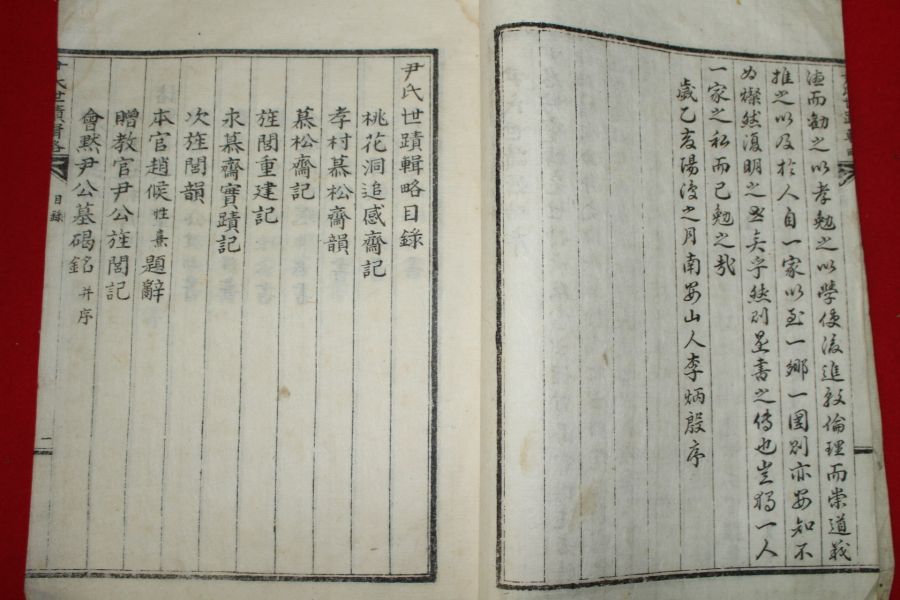 徳而勸之以孝勉之以學使後進敦倫理而崇道義
推之以及於人自一家以至一鄉一國則亦安知不
為燦然復明之丕矣乎然則是書之傳也豈獨一人
一家之私而已勉之哉
歲乙亥陽復之月南安山人李炳殷序
尹氏世蹟輯略目錄
桃花洞追感齋記
孝村慕松齋韻
慕松齋記
旌閭重建記
永慕齋實蹟記
次旌閭韻
本官趙候性熹題辭
贈教官尹公旌閭記
會默尹公墓碣銘并序
尹氏世蹟輯略
目錄
一